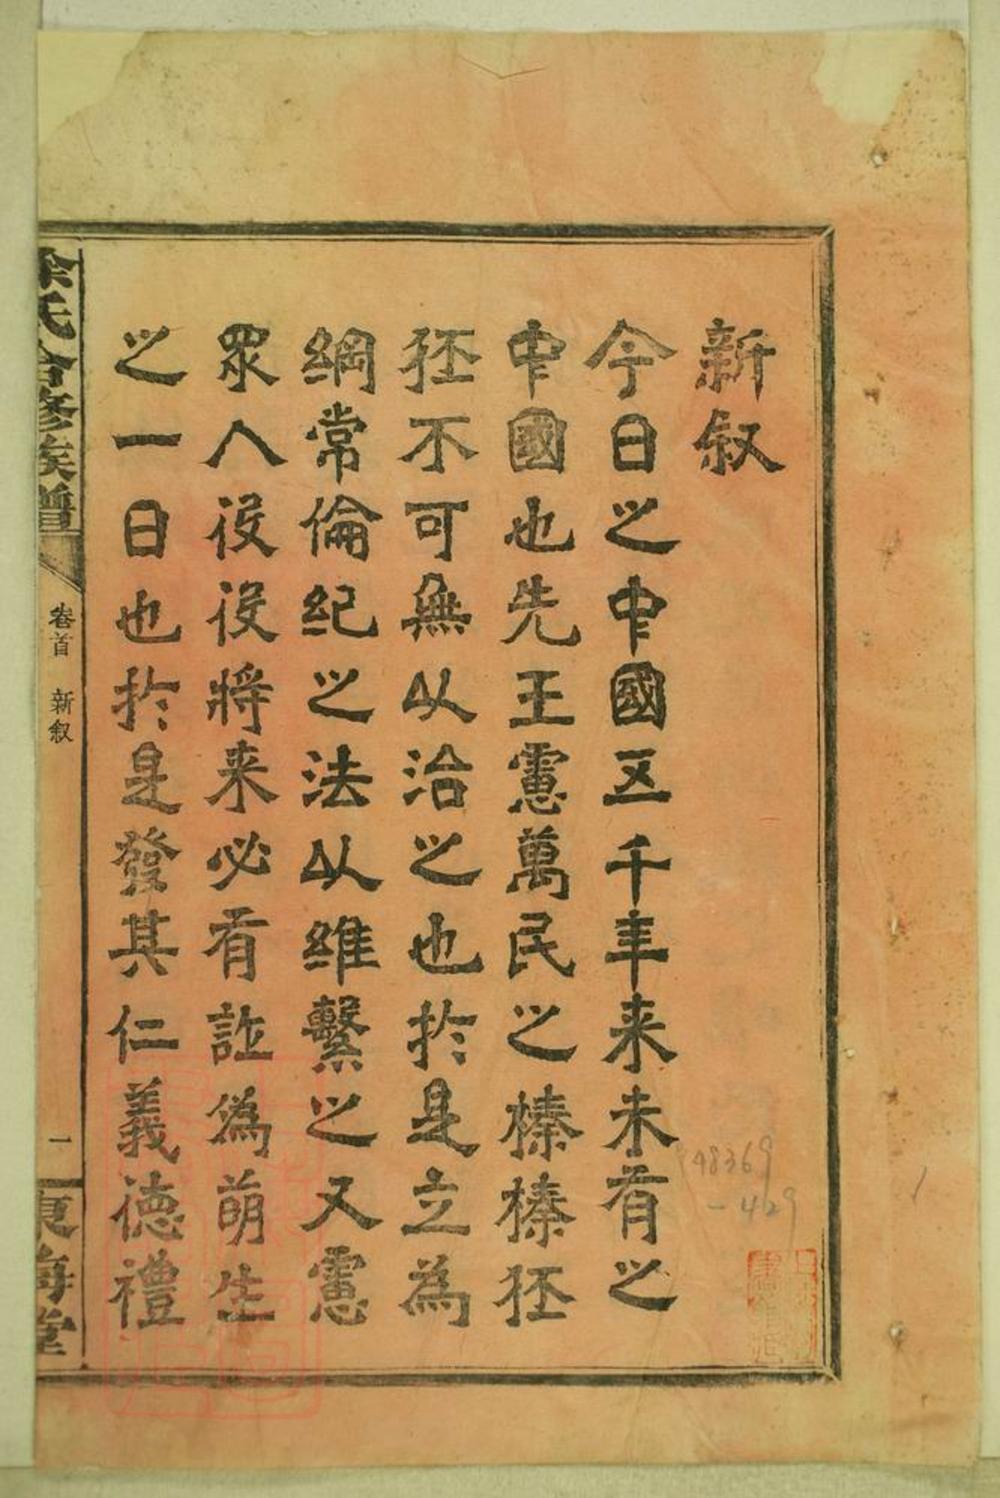 新叙
今日之中國五千年来未有之
中國也先王憲萬民之榛榛狉
狉不可無以治之也扵是立為
綱常倫紀之法以維繫之又憲
眾人役役將来必有訛為萌生
之一日也扵是發其仁義德禮
徐氏合修族譜
卷首 新叙
一
東海堂
48369
-429